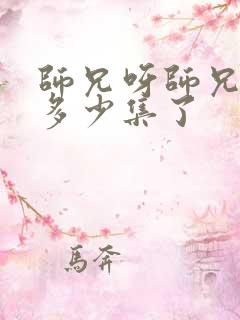 師兄呀師兄
多少集了
馬奔